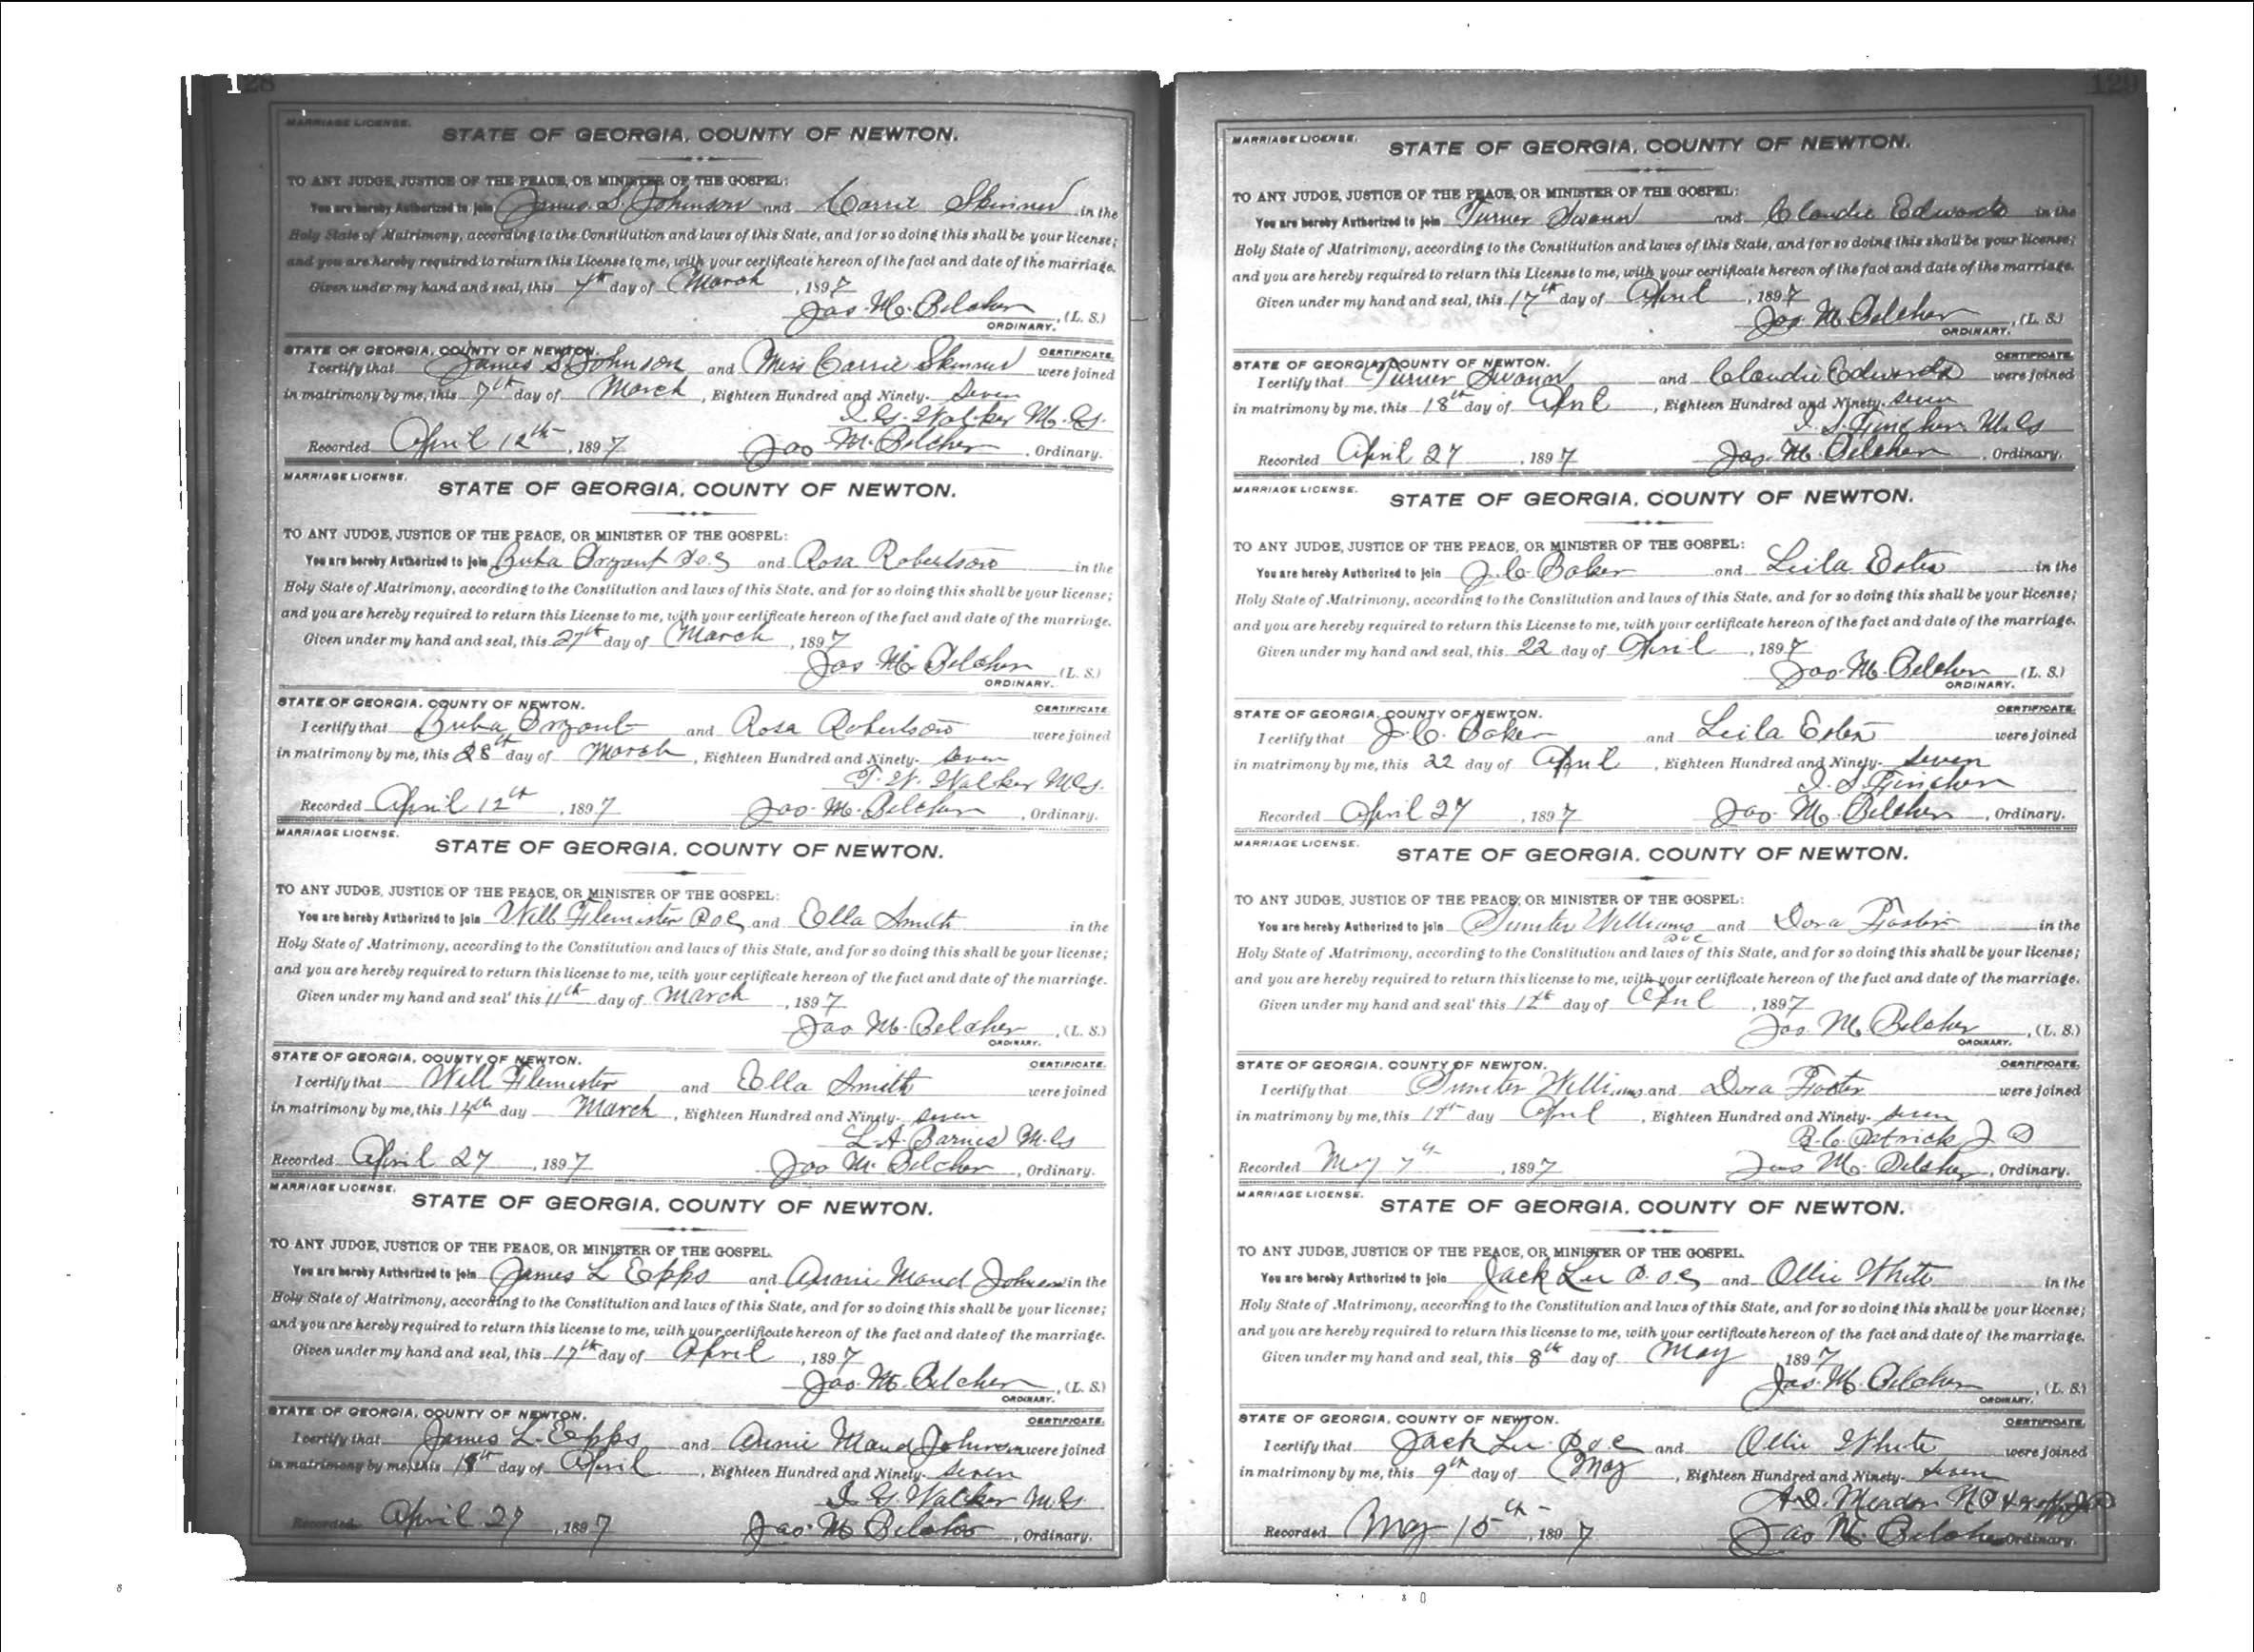 128
MARRIAGE LICENSE.
STATE OF GEORGIA, COUNTY OF NEWTON.
TO ANY JUDGE, JUSTICE OF THE PEACE, OR MINISTER OF THE GOSPEL:
You are hereby Authorized to join James S. Johnson and Carrie Skinner in the
Holy State of Matrimony, according to the Constitution and laws of this State, and for so doing this shall be your license;
and you are hereby required to return this License to me, with your certificate hereon of the fact and date of the marriage.
Given under my hand and seal, this 7th day of March, 1897
Jas. M. Belcher, (L. S.)
ORDINARY.
STATE OF GEORGIA, COUNTY OF NEWTON. CERTIFICATE.
I certify that James S. Johnson and Miss Carrie Skinner were joined
in matrimony by me, this 7th day of March, Eighteen Hundred and Ninety-seven
I. G. Walker M.G.
Recorded April 12th, 1897 Jas M. Belcher, Ordinary.
MARRIAGE LICENSE.
STATE OF GEORGIA, COUNTY OF NEWTON.
TO ANY JUDGE, JUSTICE OF THE PEACE, OR MINISTER OF THE GOSPEL:
You are hereby Authorized to join Buba and Rosa Robertson in the
Holy State of Matrimony, according to the Constitution and laws of this State, and for so doing this shall be your license;
and you are hereby required to return this License to me, with your certificate hereon of the fact and date of the marriage.
Given under my hand and seal, this 27th day of March, 1897
Jas M. Belcher (L. S.)
ORDINARY.
STATE OF GEORGIA, COUNTY OF NEWTON. CERTIFICATE
I certify that Buba and Rosa Robertson were joined
in matrimony by me, this 28th day of March, Eighteen Hundred and Ninety-seven
T. W. Walker M.G.
Recorded April 12th, 1897 Jas. M. Belcher, Ordinary.
MARRIAGE LICENSE.
STATE OF GEORGIA, COUNTY OF NEWTON.
TO ANY JUDGE, JUSTICE OF THE PEACE, OR MINISTER OF THE GOSPEL:
You are hereby Authorized to join Will Flemister P.O.C. and Ella Smith in the
Holy State of Matrimony, according to the Constitution and laws of this State, and for so doing this shall be your license;
and you are hereby required to return this license to me, with your certificate hereon of the fact and date of the marriage.
Given under my hand and seal' this 11th day of March, 1897
Jas M. Belcher, (L. S.)
ORDINARY.
STATE OF GEORGIA, COUNTY OF NEWTON. CERTIFICATE.
I certify that Will Flemister and Ella Smith were joined
in matrimony by me, this 14th day March, Eighteen Hundred and Ninety-seven
L. A. Barnes M.G
Recorded April 27, 1897 Jas M. Belcher, Ordinary.
MARRIAGE LICENSE.
STATE OF GEORGIA, COUNTY OF NEWTON.
TO ANY JUDGE, JUSTICE OF THE PEACE, OR MINISTER OF THE GOSPEL.
You are hereby Authorized to join James L Epps and Annie Maud Johnson in the
Holy State of Matrimony, according to the Constitution and laws of this State, and for so doing this shall be your license;
and you are hereby required to return this license to me, with your certificate hereon of the fact and date of the marriage.
Given under my hand and seal, this 17th day of April, 1897
Jas. M. Belcher, (L. S.)
ORDINARY.
STATE OF GEORGIA, COUNTY OF NEWTON. CERTIFICATE.
I certify that James L. Epps and Annie Maud Johnson were joined
in matrimony by me, this 18th day of April, Eighteen Hundred and Ninety-seven
I. G. Walker M.G.
Recorded April 27, 1897 Jas. M Belcher, Ordinary.
129
MARRIAGE LICENSE.
STATE OF GEORGIA, COUNTY OF NEWTON.
TO ANY JUDGE, JUSTICE OF THE PEACE, OR MINISTER OF THE GOSPEL:
You are hereby Authorized to join Turner Swann and Claudie Edwards in the
Holy State of Matrimony, according to the Constitution and laws of this State, and for so doing this shall be your license;
and you are hereby required to return this License to me, with your certificate hereon of the fact and date of the marriage.
Given under my hand and seal, this 17th day of April, 1897
Jas. M Belcher, (L. S.)
ORDINARY.
STATE OF GEORGIA, COUNTY OF NEWTON. CERTIFICATE.
I certify that Turner Swann and Claudie Edwards were joined
in matrimony by me, this 18th day of April, Eighteen Hundred and Ninety-seven
I. S. Fincher M.G
Recorded April 27, 1897 Jas. M. Belcher, Ordinary.
MARRIAGE LICENSE.
STATE OF GEORGIA, COUNTY OF NEWTON.
TO ANY JUDGE, JUSTICE OF THE PEACE, OR MINISTER OF THE GOSPEL:
You are hereby Authorized to join J. C. Baker and Leila Estes in the
Holy State of Matrimony, according to the Constitution and laws of this State, and for so doing this shall be your license;
and you are hereby required to return this License to me, with your certificate hereon of the fact and date of the marriage.
Given under my hand and seal, this 22 day of April, 1897
Jas. M. Belcher (L. S.)
ORDINARY.
STATE OF GEORGIA, COUNTY OF NEWTON. CERTIFICATE.
I certify that J. C. Baker and Leila Estes were joined
in matrimony by me, this 22 day of April, Eighteen Hundred and Ninety-seven
I. S. Fincher
Recorded April 27, 1897 Jas. M. Belcher, Ordinary.
MARRIAGE LICENSE.
STATE OF GEORGIA, COUNTY OF NEWTON.
TO ANY JUDGE, JUSTICE OF THE PEACE, OR MINISTER OF THE GOSPEL:
You are hereby Authorized to join Sumter Williams and Dora Foster in the
P.O.C
Holy State of Matrimony, according to the Constitution and laws of this State, and for so doing this shall be your license;
and you are hereby required to return this license to me, with your certificate hereon of the fact and date of the marriage.
Given under my hand and seal' this 12th day of April, 1897
Jas. M. Belcher, (L. S.)
ORDINARY.
STATE OF GEORGIA, COUNTY OF NEWTON. CERTIFICATE.
I certify that Sumter Williams and Dora Foster were joined
in matrimony by me, this day April, Eighteen Hundred and Ninety-seven
R. C. Patrick J P
Recorded May 7th, 1897 Jas M. Belcher, Ordinary.
MARRIAGE LICENSE.
STATE OF GEORGIA, COUNTY OF NEWTON.
TO ANY JUDGE, JUSTICE OF THE PEACE, OR MINISTER OF THE GOSPEL.
You are hereby Authorized to join Jack Lee P.O.C. and Ollie White in the
Holy State of Matrimony, according to the Constitution and laws of this State, and for so doing this shall be your license;
and you are hereby required to return this license to me, with your certificate hereon of the fact and date of the marriage.
Given under my hand and seal, this 8th day of May, 1897
Jas. M. Belcher, (L. S.)
ORDINARY.
STATE OF GEORGIA, COUNTY OF NEWTON. CERTIFICATE.
I certify that Jack Lee P.O.C and Ollie White were joined
in matrimony by me, this 9th day of May, Eighteen Hundred and Ninety-seven
A. D. N P & J P
Recorded May 15th, 1897 Jas M. Belcher Ordinary.